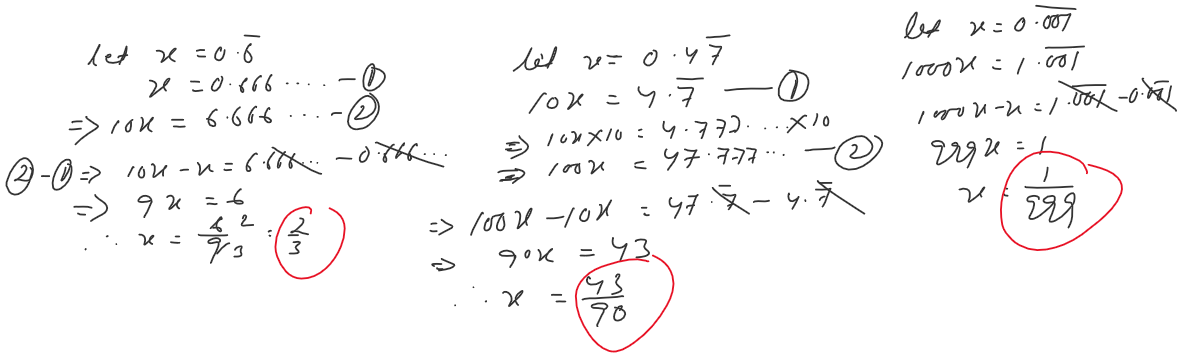 let x = 0.6̅
x = 0.666 .... — ①
=> 10x = 6.666 ... — ②
② - ① => 10x - x = 6.666... - 0.666...
=> 9x = 6
∴ x = 6/9 2/3 = 2/3
let x = 0.47̅
10x = 4.7̅ — ①
=> 10x×10 = 4.772....×10
=> 100x = 47.777.. — ②
=> 100x - 10x = 47.7̅ - 4.7̅
=> 90x = 43
∴ x = 43/90
let x = 0.0̅0̅1̅
1000x = 1.0̅0̅1̅
1000x - x = 1.0̅0̅1̅ - 0.0̅0̅1̅
999x = 1
x = 1/999